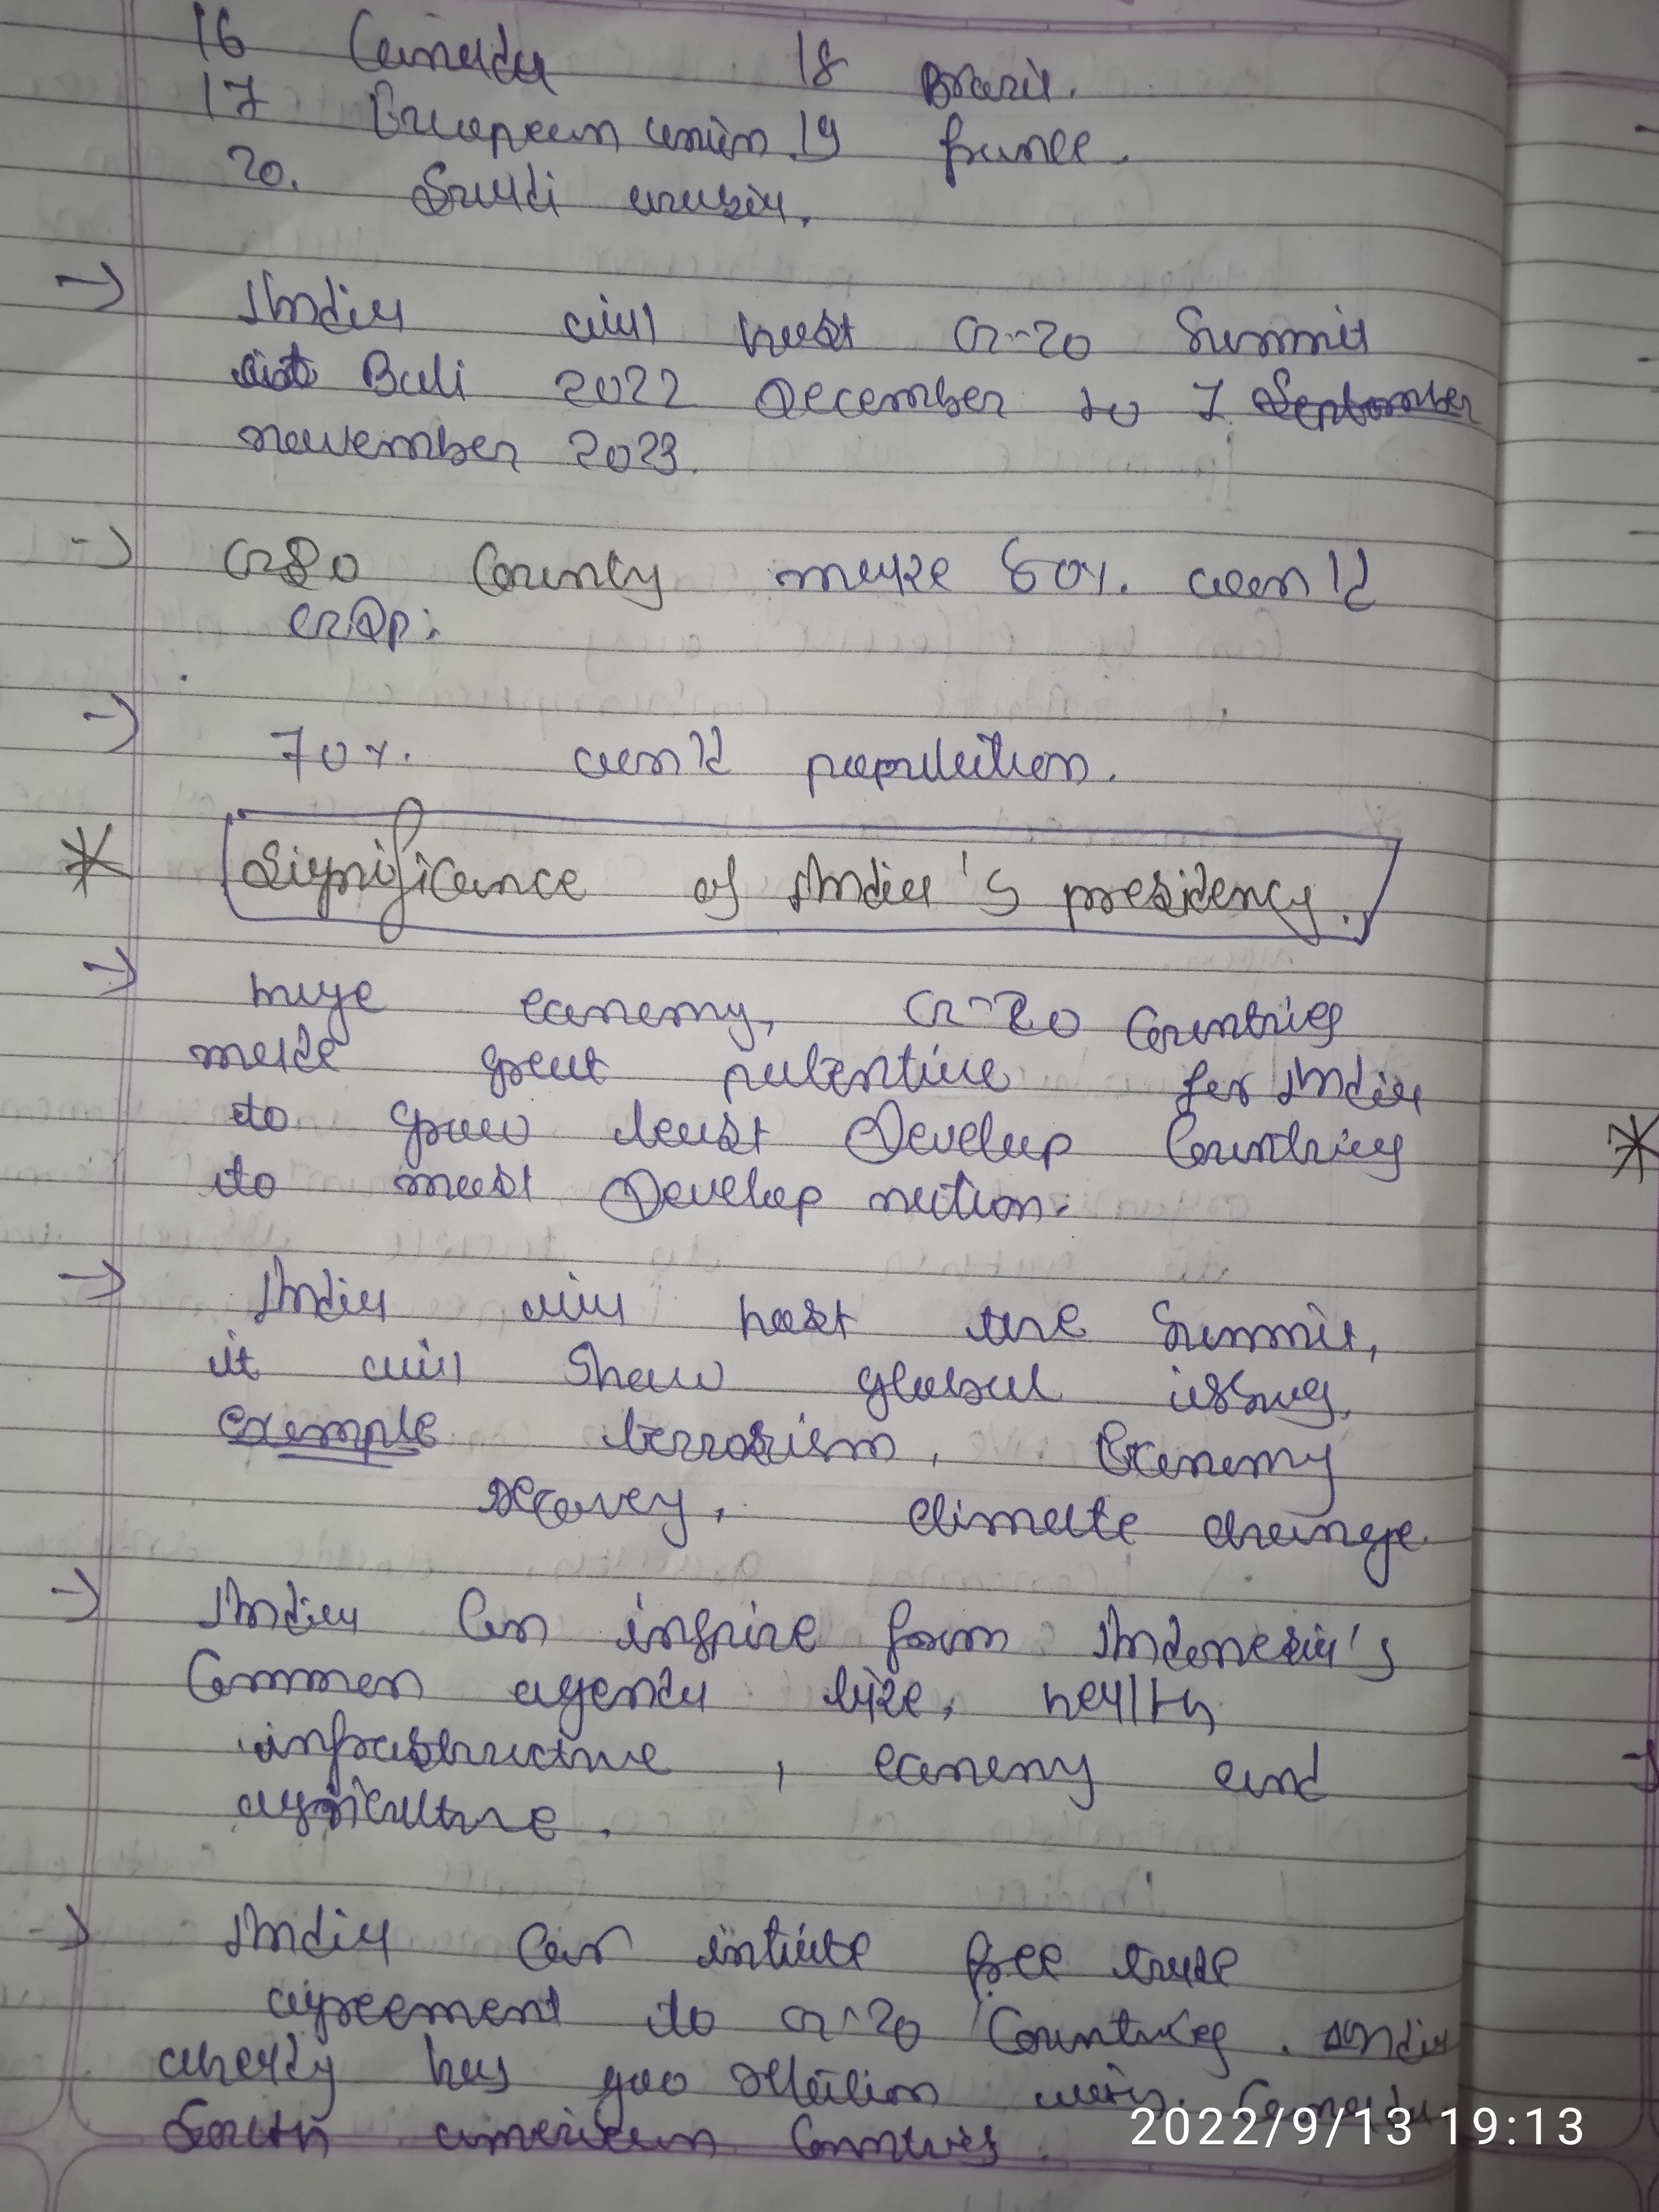 16 Canada 18 Brazil.
17 European union 19 france.
20. Saudi arabia.
→ India will host G-20 Summit
at Bali 2022 December to 7 September
november 2023.
→ G20 County make 80%. world
GDP.
→ 70%. world population.
* Significance of India's presidency.
→ huge econemy, G-20 Countries
made great potentive for India
to grow least Develop Countries
to most Develop nation.
→ India will host the Summit,
it will Show global issues,
example terrorism, Economy
recovey, climate change
→ India Can inspire from Indonesia's
Common agenda like, health,
infrastructure, econemy and
agriculture.
→ India Can intiate free trade
agreement to G-20 Countries. India
alredy has goo relation with Canada
South american Countries.
2022/9/13 19:13